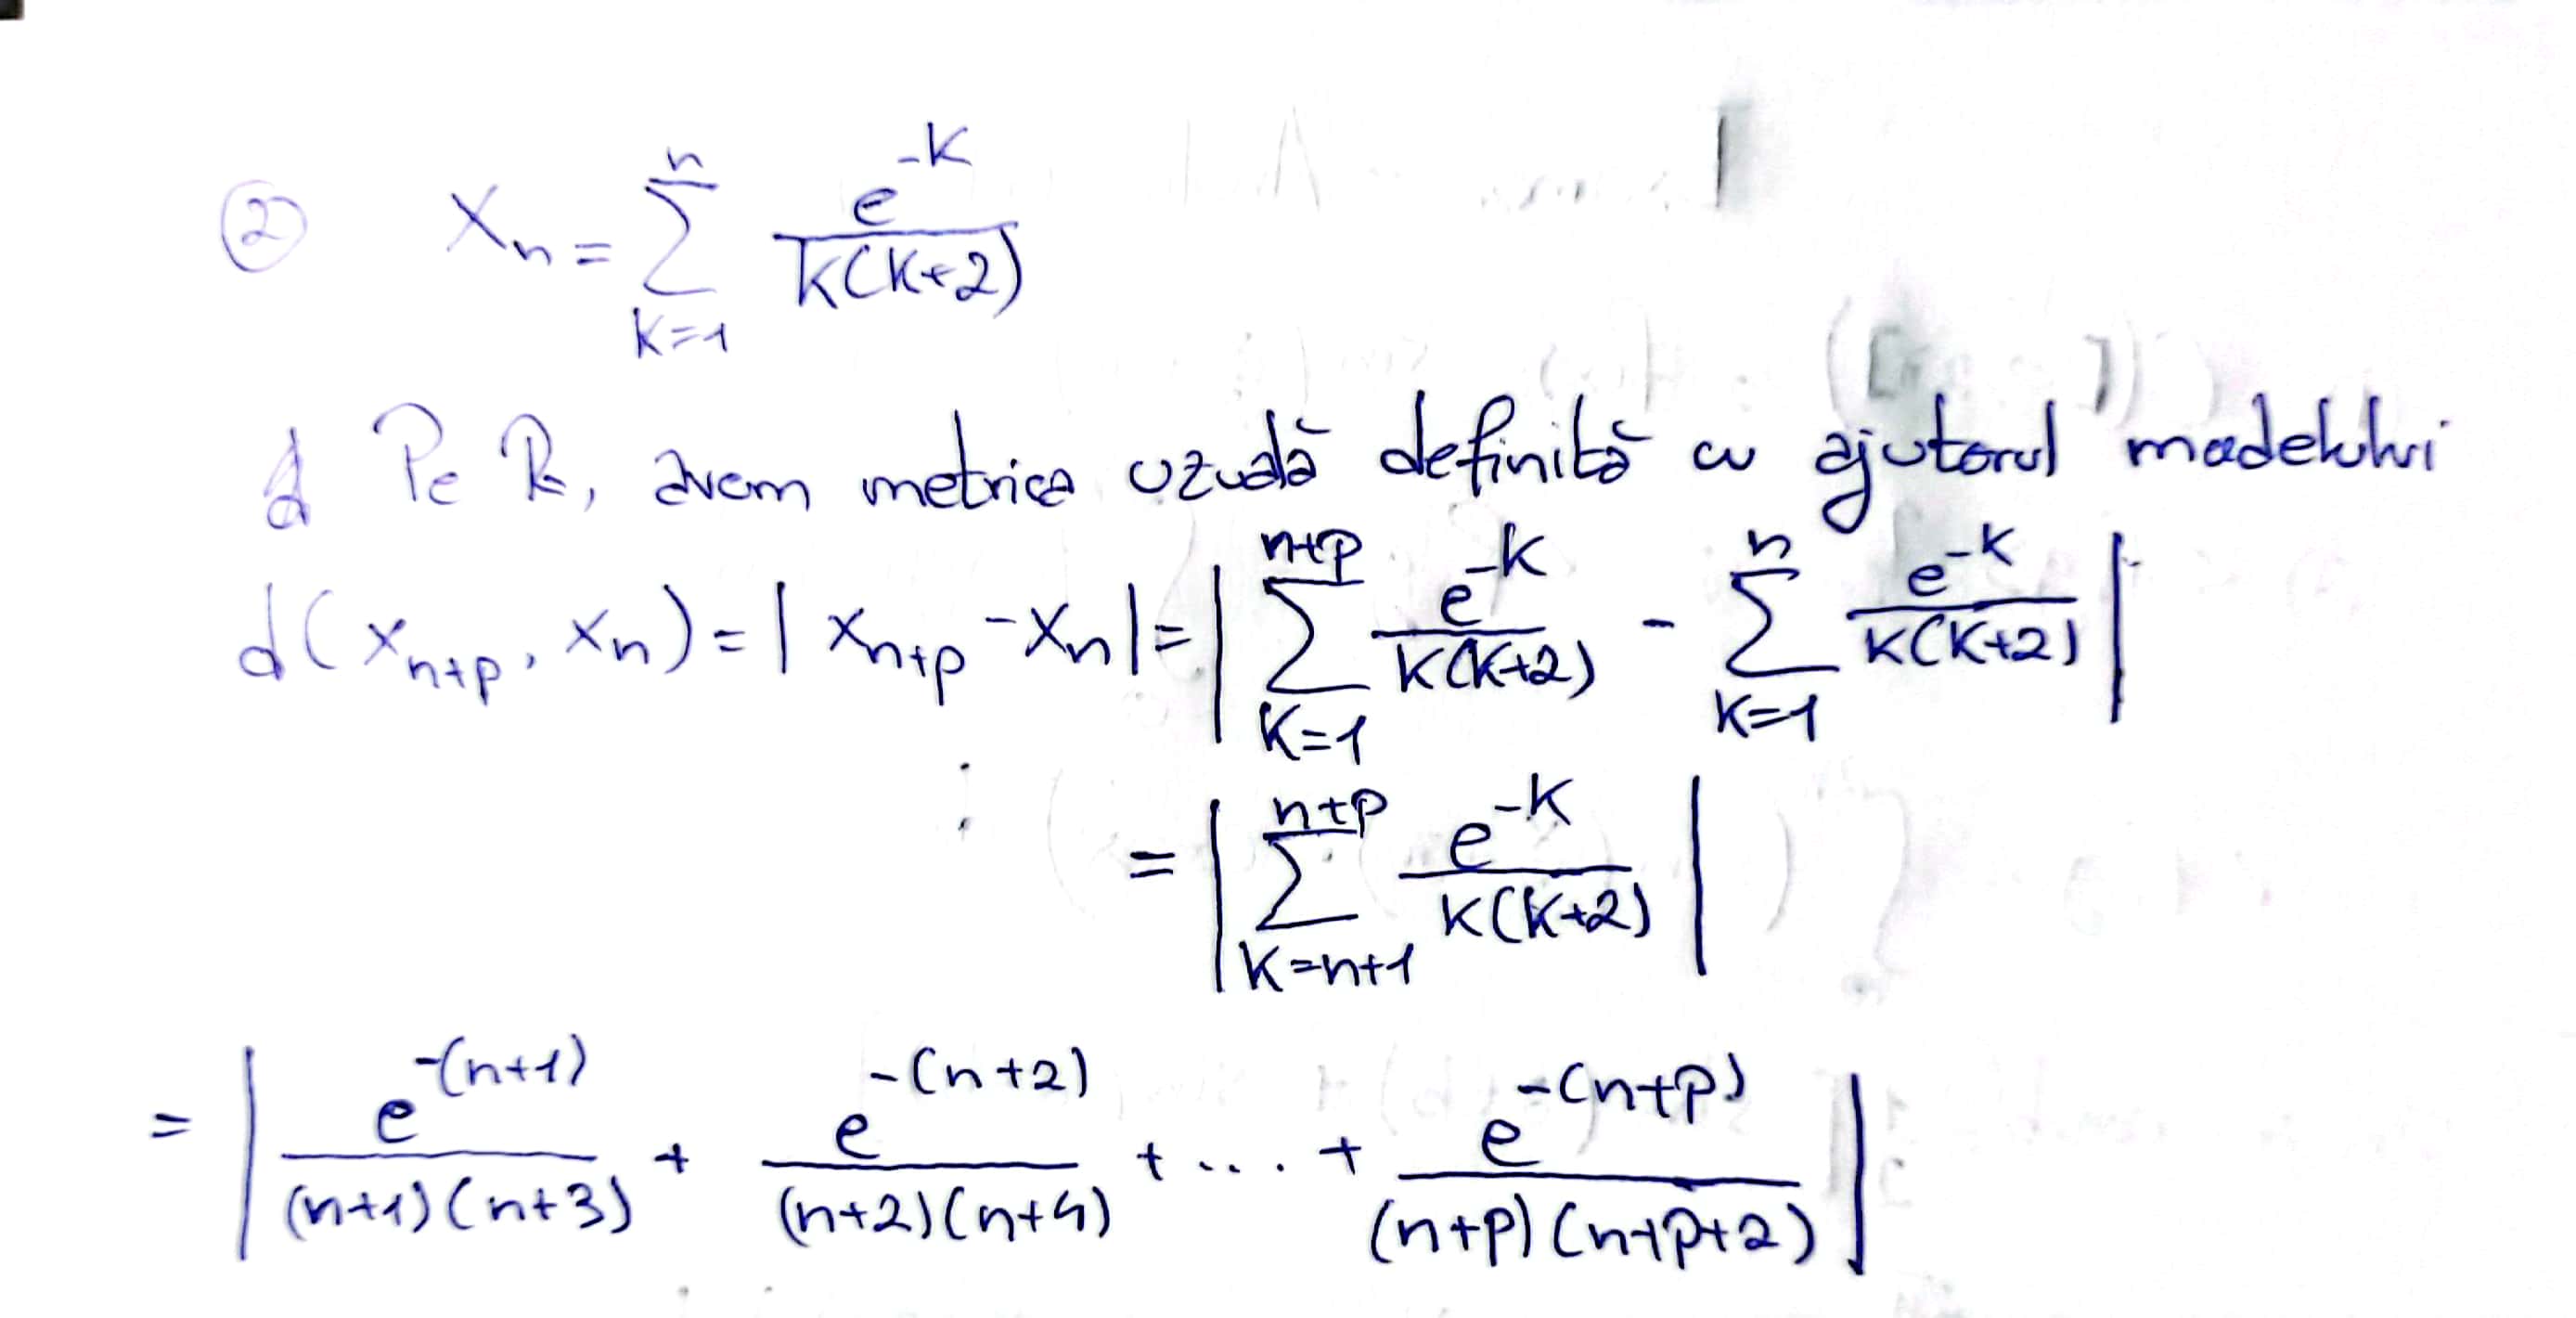 ② xₙ = ∑_{k=1}^{n} e^{-k} / k(k+2)
Pe ℝ, avem metrica uzuală definită cu ajutorul modelului
d(x_{n+p}, xₙ) = | x_{n+p} - xₙ | = | ∑_{k=1}^{n+p} e^{-k} / k(k+2) - ∑_{k=1}^{n} e^{-k} / k(k+2) |
= | ∑_{k=n+1}^{n+p} e^{-k} / k(k+2) |
= | e^{-(n+1)} / (n+1)(n+3) + e^{-(n+2)} / (n+2)(n+4) + ... + e^{-(n+p)} / (n+p)(n+p+2) |